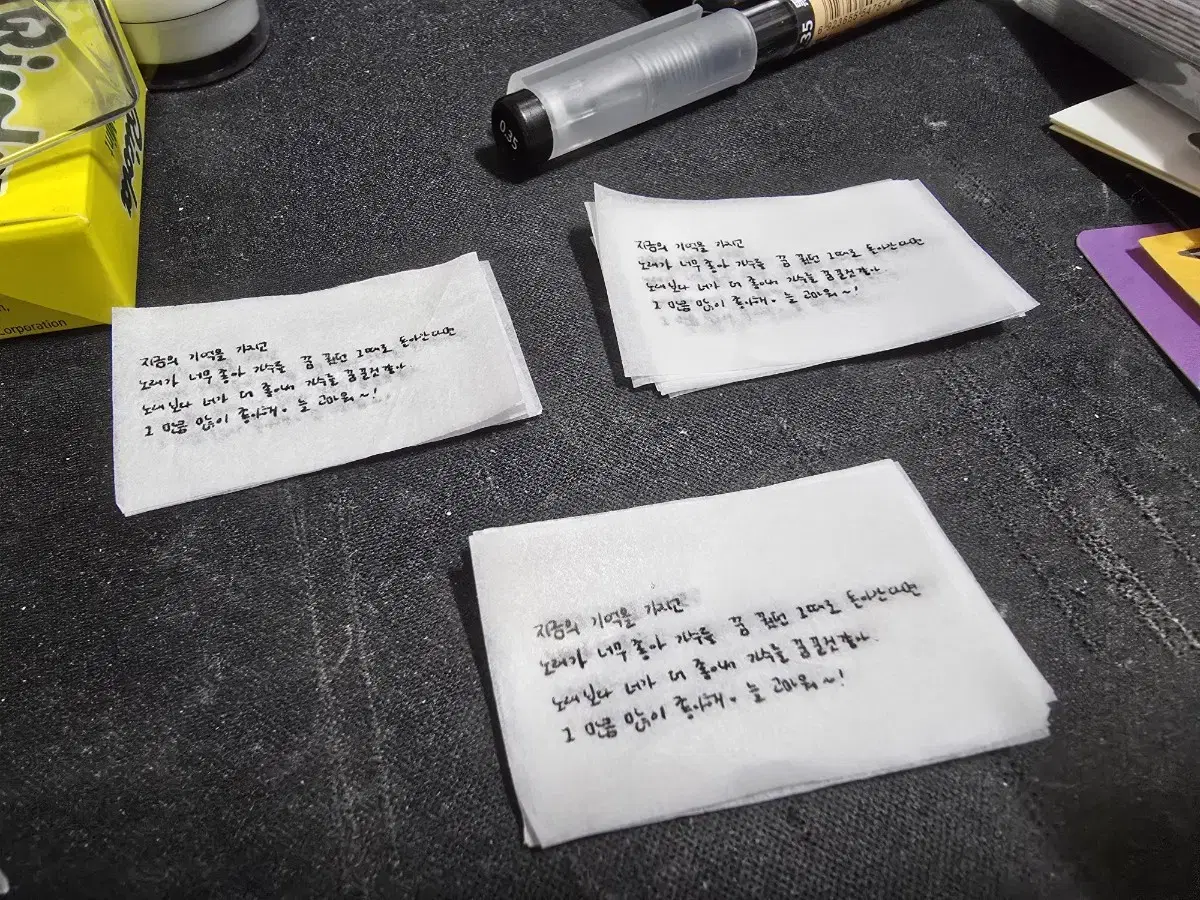 Ricola
Ricola
Corporation
0.35
35
6 923855 547574
지금의 기억을 가지고
노래가 너무 좋아 가수를 꿈 꿨던 그때로 돌아간다면
노래보다 너가 더 좋아서 가수를 꿈꿀것 같아
그 만큼 많이 좋아해. 늘 고마워~!
지금의 기억을 가지고
노래가 너무 좋아 가수를 꿈 꿨던 그때로 돌아간다면
노래보다 너가 더 좋아서 가수를 꿈꿀것 같아
그 만큼 많이 좋아해. 늘 고마워~!
지금의 기억을 가지고
노래가 너무 좋아 가수를 꿈 꿨던 그때로 돌아간다면
노래보다 너가 더 좋아서 가수를 꿈꿀것 같아
그 만큼 많이 좋아해. 늘 고마워~!